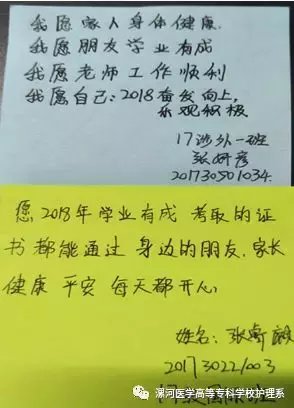 我愿家人身体健康.
我愿朋友学业有成
我愿老师工作顺利
我愿自己:2018奋发向上,
乐观积极
17涉外一班
张妍彦
201730501034.
愿2018年学业有成 考取的证
书都能通过 身边的朋友.家长
健康 平安 每天都开心
姓名:张
201730221003
漯河医学高等专科学校护理系
17 国际班